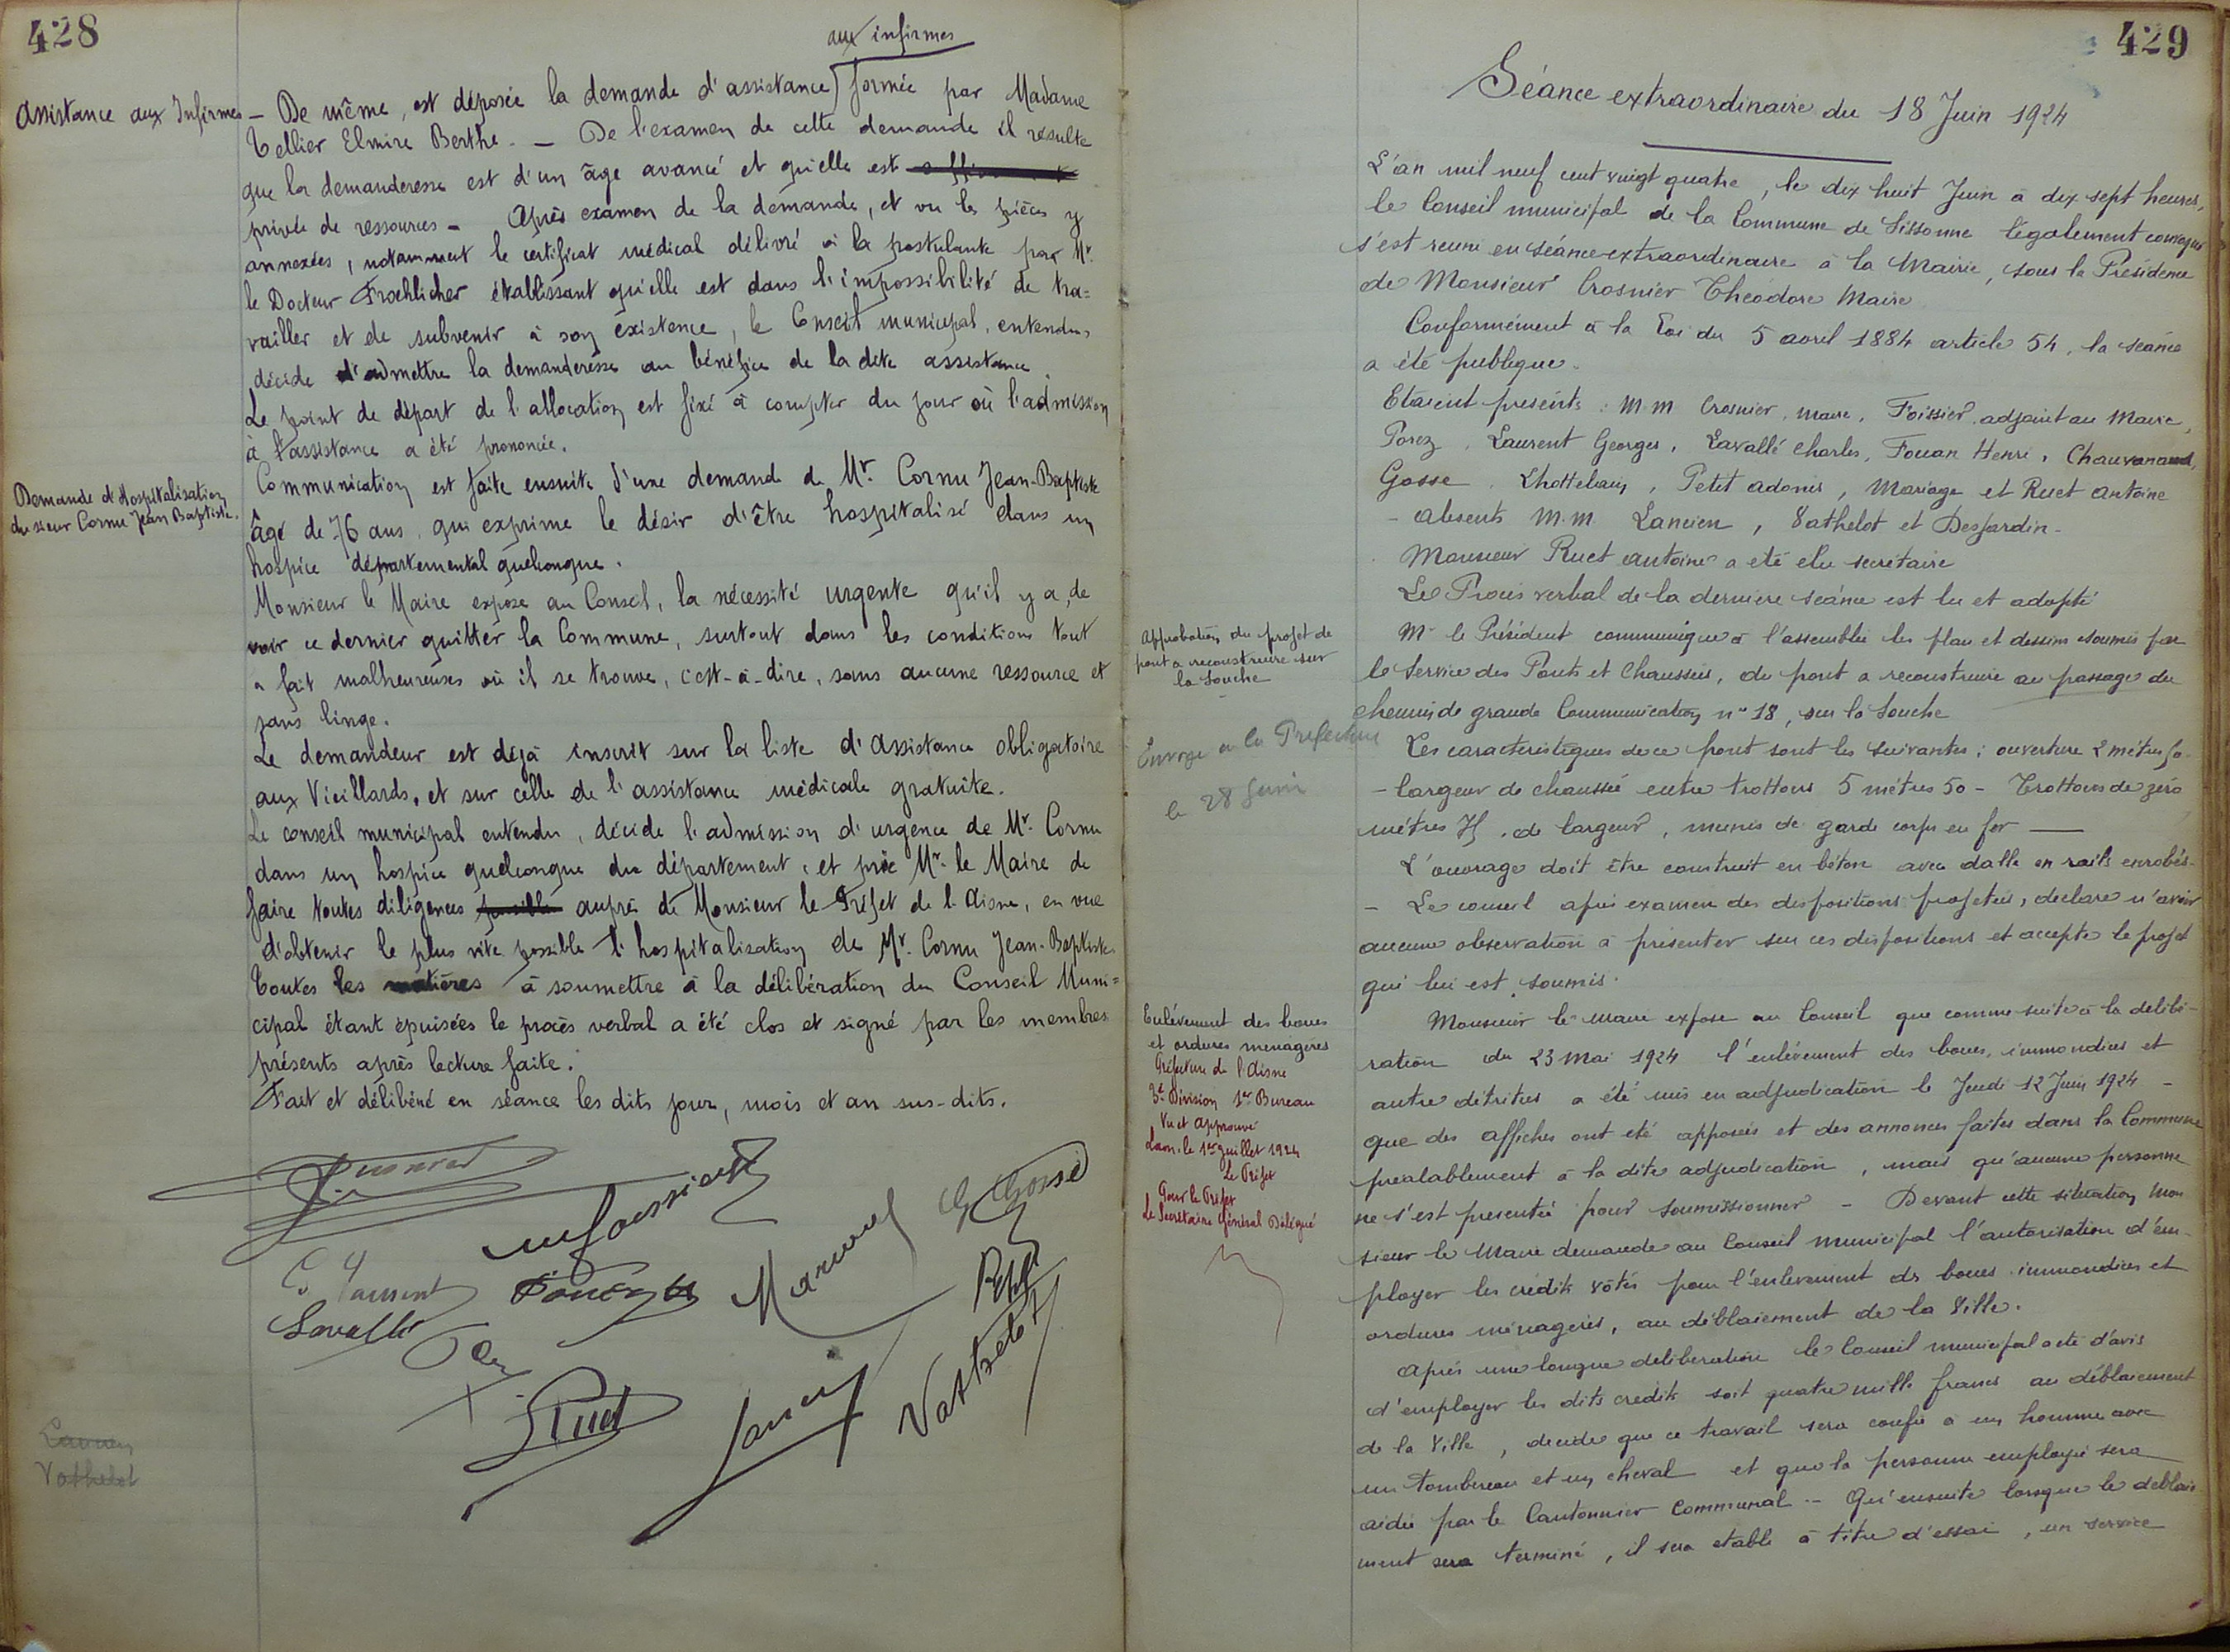 428
aux infirmes
Assistance aux Infirmes
- De même, est déposée la demande d'assistance formée par Madame
Tellier Elmire Berthe. - De l'examen de cette demande il résulte
que la demanderesse est d'un âge avancé et qu'elle est
privée de ressources - Après examen de la demande, et vu les pièces y
annexées, notamment le certificat médical délivré à la postulante par Mr.
le Docteur Froehlicher établissant qu'elle est dans l'impossibilité de tra=
vailler et de subvenir à son existence, le Conseil municipal, entendu,
décide d'admettre la demanderesse au bénéfice de la dite assistance.
Le point de départ de l'allocation est fixé à compter du jour où l'admission
à l'assistance a été prononcée.
Demande d'Hospitalisation
du sieur Cornu Jean Baptiste.
Communication est faite ensuite d'une demande de Mr. Cornu Jean-Baptiste
âgé de 76 ans, qui exprime le désir d'être hospitalisé dans un
hospice départemental quelconque.
Monsieur le Maire expose au Conseil, la nécessité urgente qu'il y a, de
voir ce dernier quitter la Commune, surtout dans les conditions tout
a fait malheureuses où il se trouve, c'est-à-dire, sans aucune ressource et
sans linge.
Le demandeur est déjà inscrit sur la liste d'Assistance obligatoire
aux Vieillards, et sur celle de l'assistance médicale gratuite.
Le conseil municipal entendu, décide l'admission d'urgence de Mr. Cornu
dans un hospice quelconque du département, et prie Mr. le Maire de
faire toutes diligences possible auprès de Monsieur le Préfet de l'Aisne, en vue
d'obtenir le plus vite possible l'hospitalisation de Mr. Cornu Jean-Baptiste.
Toutes les matières à soumettre à la délibération du Conseil Muni=
cipal étant épuisées le procès verbal a été clos et signé par les membres
présents après lecture faite.
Fait et délibéré en séance les dits jour, mois et an sus-dits.
Crosnier
Foissier
G Gosse
G. Laurent
Lavallé
Ruet
Vathelot
Lancien
Vathelot
429
Séance extraordinaire du 18 Juin 1924
L'an mil neuf cent vingt quatre, le dix huit Juin à dix sept heures,
le Conseil municipal de la Commune de Sissonne légalement convoqué
s'est reuni en séance extraordinaire à la Mairie, sous la Présidence
de Monsieur Crosnier Théodore Maire
Conformément à la Loi du 5 avril 1884 article 54, la séance
a été publique.
Etaient présents : M.M. Crosnier, maire, Foissier, adjoint au Maire,
Porez, Laurent Georges, Lavallé Charles, Fouan Henri, Chauvenaud,
Gosse, Lhottebain, Petit adonis, Mariage et Ruet Antoine
- Absents M.M. Lancien, Vathelot et Desjardin -
Monsieur Ruet Antoine a été élu secrétaire
Le Procès verbal de la dernière séance est lu et adopté
Approbation du projet de
pont a reconstruire sur
la Souche
Mr le Président communique à l'assemblée les plan et dessins soumis par
le Service des Ponts et Chaussées, du pont a reconstruire au passage du
chemin de grande Communication n° 18, sur la Souche
Envoyé a la Prefecture
le 28 Juin
Les caracteristiques de ce pont sont les suivantes : ouverture 2 mètres 50 -
- largeur de chaussée entre trottoirs 5 mètres 50 - Trottoirs de zéro
mètres 75, de largeur, munis de garde corps en fer —
L'ouvrage doit être construit en béton avec dalle en rails enrobés -
- Le conseil après examen des dispositions projetées, déclare n'avoir
aucune observation à présenter sur ces dispositions et accepte le projet
qui lui est soumis.
Enlèvement des boues
et ordures ménagères
Préfecture de l'Aisne
3e Division 1er Bureau
Vu et approuvé
Laon, le 1er Juillet 1924
Le Préfet
Pour le Préfet
Le Secrétaire Général Délégué
Monsieur le Maire expose au Conseil que comme suite à la délibé-
ration du 23 Mai 1924 l'enlèvement des boues, immondices et
autre détritus a été mis en adjudication le Jeudi 12 Juin 1924 -
que des affiches ont été apposées et des annonces faites dans la Commune
préalablement à la dite adjudication, mais qu'aucune personne
ne s'est présentée pour soumissionner - Devant cette situation Mon
sieur le Maire demande au Conseil municipal l'autorisation d'em-
ployer les crédits votés pour l'enlevement des boues immondices et
ordures ménagères, au déblaiement de la Ville.
Après une longue délibération le Conseil municipal a été d'avis
d'employer les dits crédits soit quatre mille francs au déblaiement
de la Ville, décide que ce travail sera confié à un homme avec
un tombereau et un cheval et que la personne employée sera
aidée par le Cantonnier Communal - Qu'ensuite lorsque le déblaie
ment sera terminé, il sera établi à titre d'essai, un service